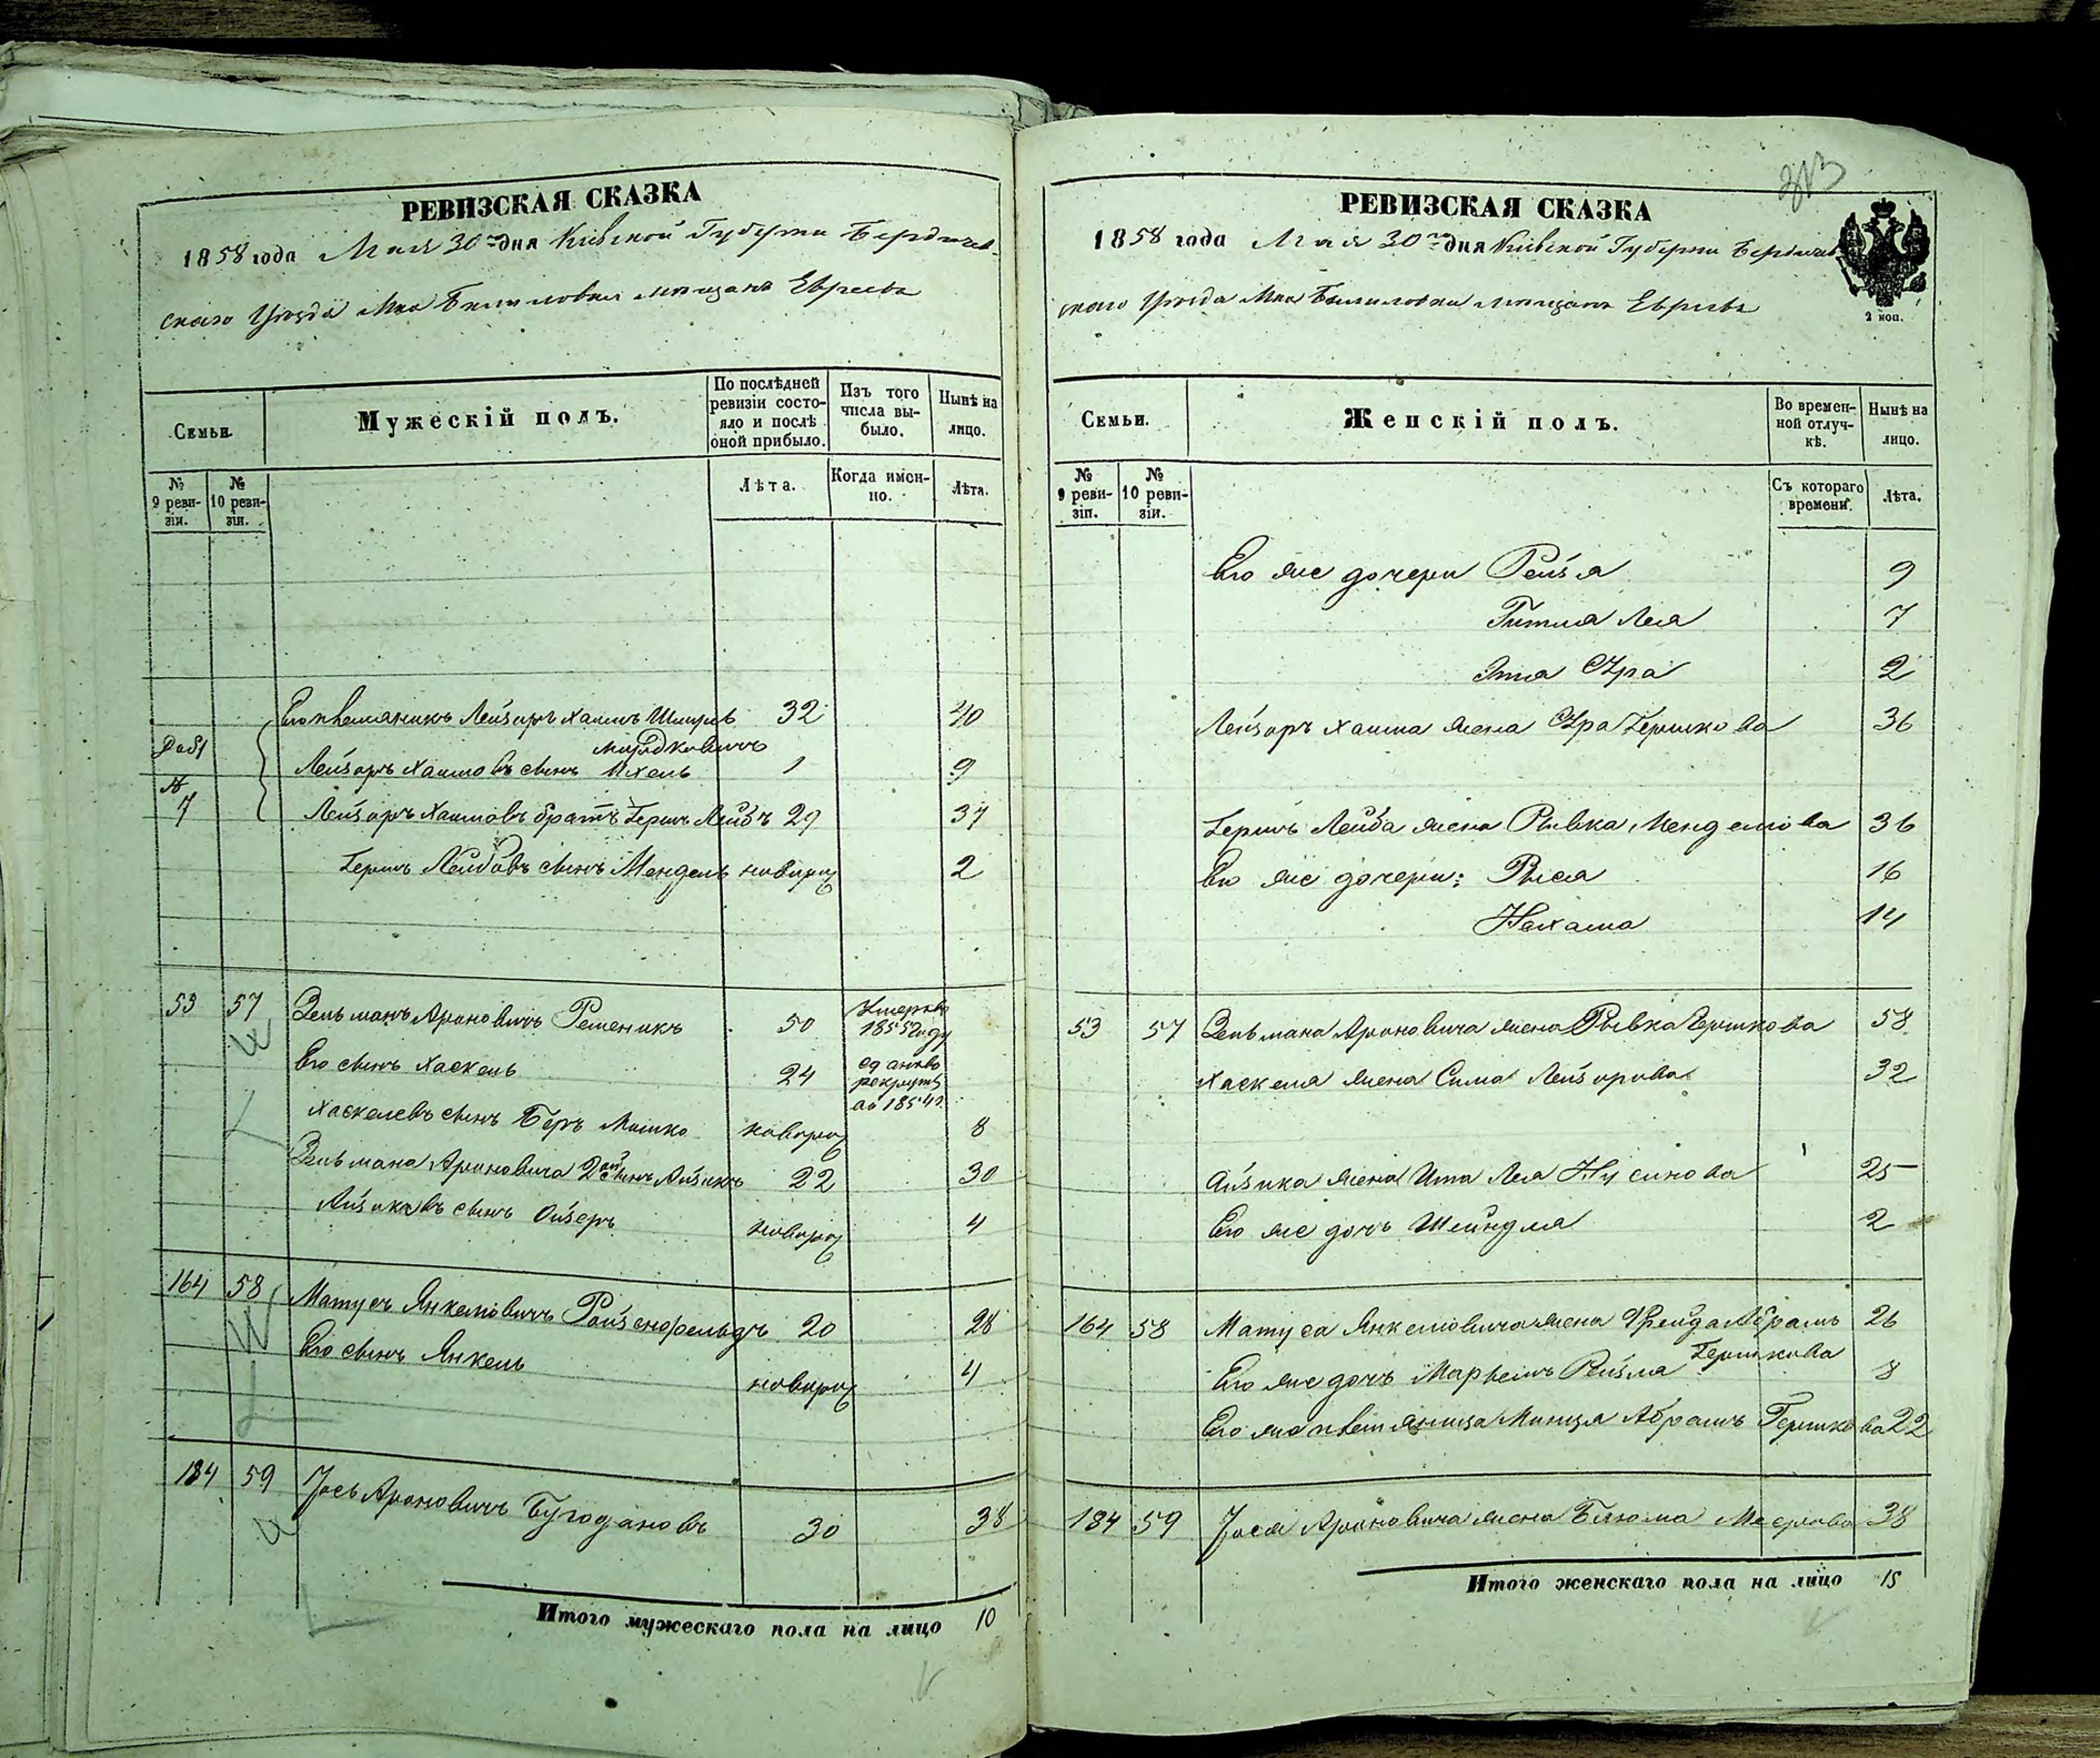 РЕВИЗСКАЯ СКАЗКА
1858 года Мая 30го дня Киевской Губерни Бердичев
скаго Уѣзда Мка Билиловки мѣщанъ Евреевъ
Семьи.
Мужескій полъ.
По послѣдней ревизіи состояло и послѣ оной прибыло.
Изъ того числа выбыло.
Нынѣ на лицо.
№ 9 ревизіи.
№ 10 ревизіи.
Лѣта.
Когда именно.
Лѣта.
Его племяникъ Лейзоръ Хаимъ 32 40
Мордковичъ
Лейзоръ Хаимовъ сынъ Ихель 1 9
7 Лейзоръ Хаимовъ братъ Гершъ Лейбъ 29 37
Гершъ Лейбовъ сынъ Мендель новорож 2
53 57 Зельманъ Ароновичъ Ременикъ 50 Умеръ въ 1855 году
Его сынъ Хаскель 24 сданъ въ рекруты въ 1854 г.
Хаскелевъ сынъ Беръ Мошко новорож 8
Зельмана Ароновича 2ой сынъ Айзикъ 22 30
Айзиковъ сынъ Ойзеръ новорож 4
164 58 Матусъ Янкелювичъ Ройзенфельдъ 20 28
Его сынъ Янкель новорож 4
184 59 Іось Ароновичъ Бугодановъ 30 38
Итого мужескаго пола на лицо 10
РЕВИЗСКАЯ СКАЗКА
2 коп.
1858 года Мая 30го дня Киевской Губерни Бердичев
скаго Уѣзда Мка Билиловки мѣщанъ Евреевъ
Семьи.
Женскій полъ.
Во временной отлучкѣ.
Нынѣ на лицо.
№ 9 ревизіи.
№ 10 ревизіи.
Съ котораго времени.
Лѣта.
Его же дочери Рейзя 9
Гитля Лея 7
Этля Сура 2
Лейзоръ Хаима жена Сура Гершкова 36
Гершъ Лейба жена Рывка Менделіова 36
Его же дочери: Рыся 16
Нехама 14
53 57 Зельмана Ароновича жена Рывка Гершкова 58
Хаскеля жена Сима Лейзорова 32
Айзика жена Ита Лея Нусинова 25
Его же дочь Шейндля 2
164 58 Матуса Янкеліовича жена Фрейда Абрамъ 26
Гершкова
Его же дочъ Марьемъ Рейзля 8
Его же племяница Минця Абрамъ Гершкова 22
184 59 Іося Ароновича жена Блюма Меерова 38
Итого женскаго пола на лицо 15